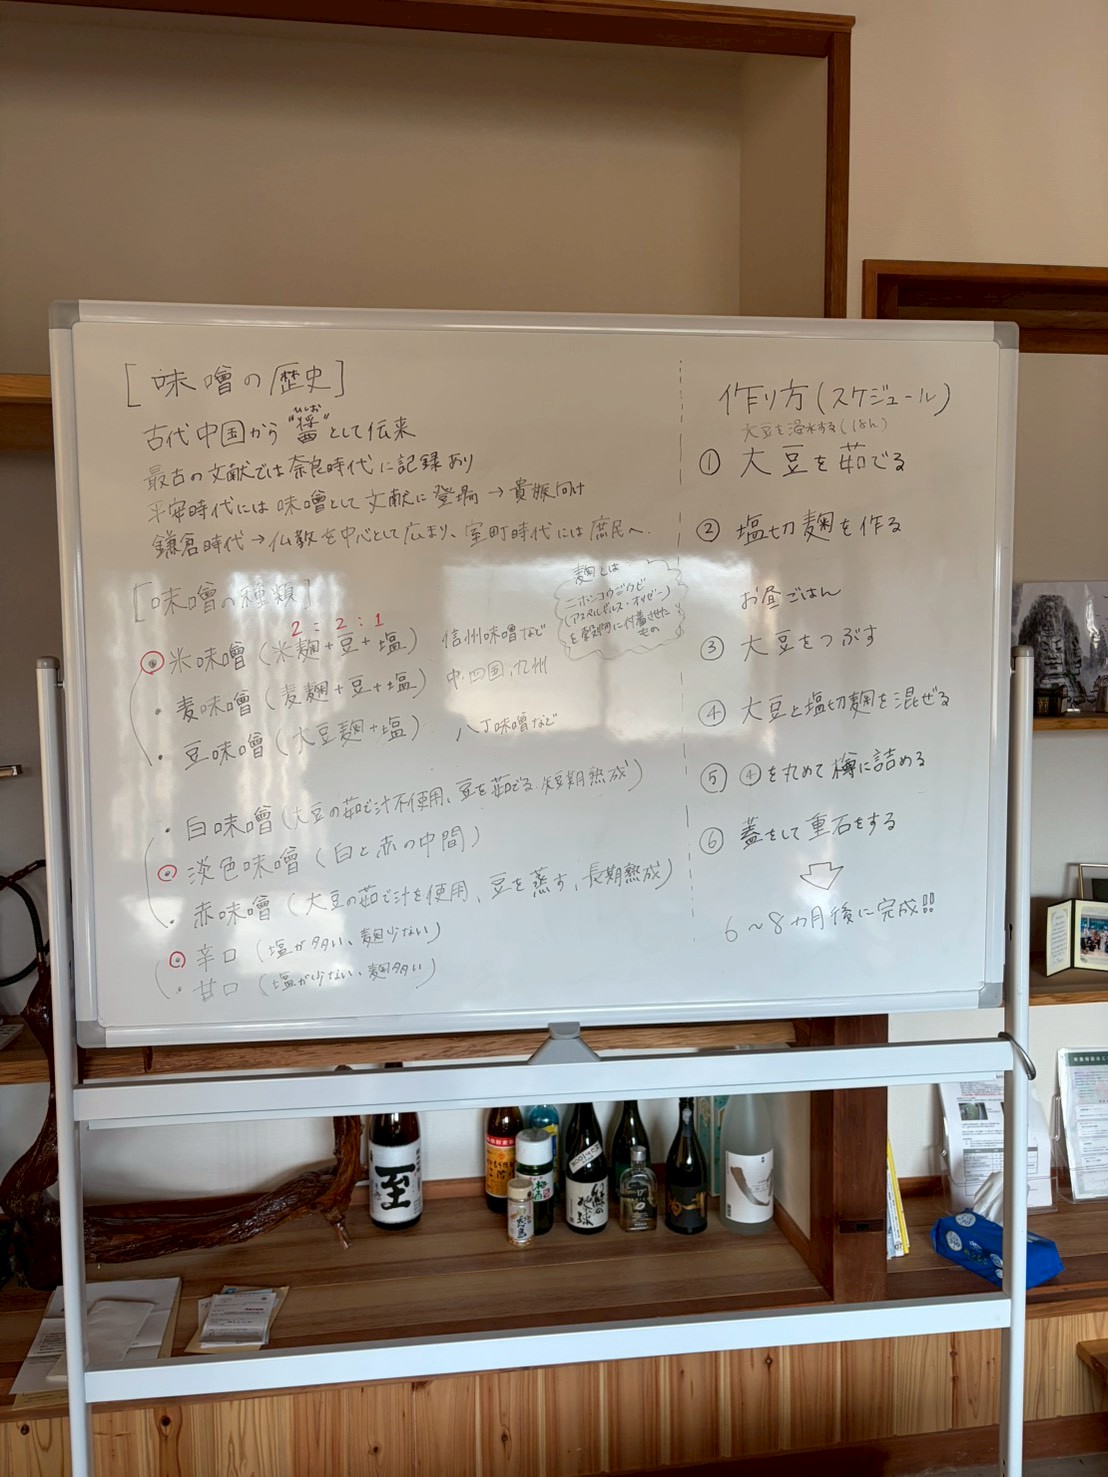 [味噌の歴史]
古代中国から"醤"として伝来
ひしお
最古の文献では奈良時代に記録あり
平安時代には味噌として文献に登場→貴族向け
鎌倉時代→仏教を中心として広まり、室町時代には庶民へ.
[味噌の種類]
2:2:1
米味噌(米麹+豆+塩) 信州味噌など
・麦味噌(麦麹+豆+塩) 中・四国、九州
・豆味噌(大豆麹+塩) 八丁味噌など
麹とは
ニホンコウジカビ
(アスペルギルス・オリゼー)
を穀物に付着させた
もの
・白味噌(大豆の茹で汁不使用、豆を茹でる、短期熟成)
淡色味噌(白と赤の中間)
・赤味噌(大豆の茹で汁を使用、豆を蒸す、長期熟成)
辛口(塩が多い、麹少ない)
・甘口(塩が少ない、麹多い)
作り方(スケジュール)
大豆を浸水する
① 大豆を茹でる
② 塩切麹を作る
お昼ごはん
③ 大豆をつぶす
④ 大豆と塩切麹を混ぜる
⑤ ④を丸めて樽に詰める
⑥ 蓋をして重石をする
6〜8カ月後に完成!!
至